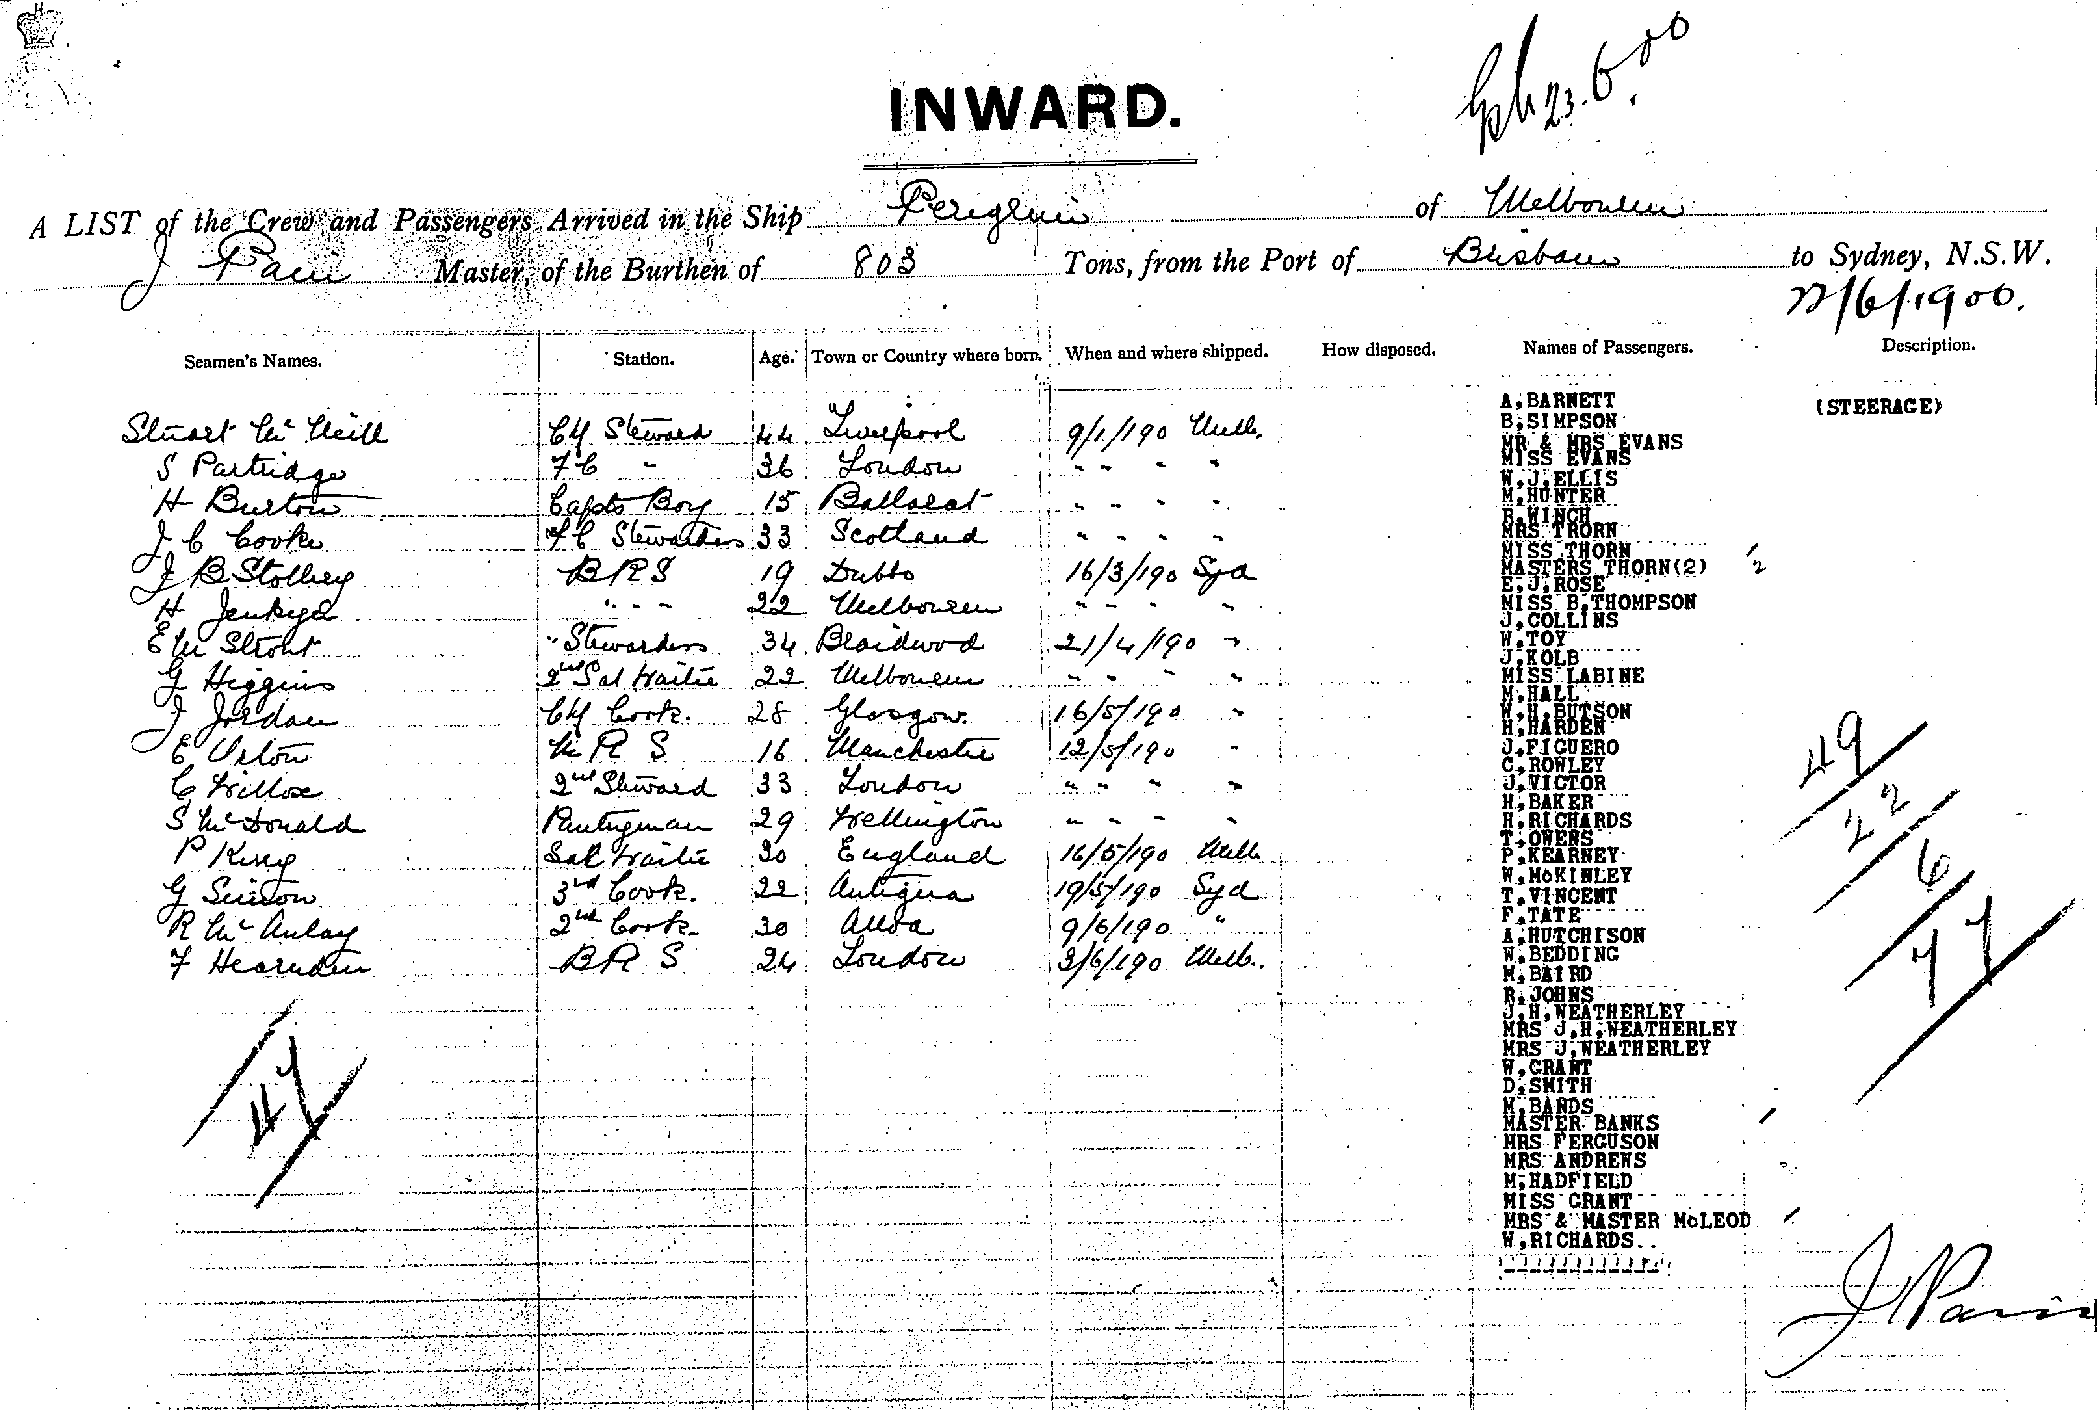 23.6.00
INWARD.
A LIST of the Crew and Passengers Arrived in the Ship Peregrine of Melbourne
J Pain Master, of the Burthen of 803 Tons, from the Port of Brisbane to Sydney, N.S.W.
22/6/1900.
Seamen's Names. Station. Age. Town or Country where born. When and where shipped. How disposed. Names of Passengers. Description.
Stuart McNeill Chf Steward 44 Liverpool 9/1/190 Melb.
S Partridge FC " 36 London " " " "
H Burton Capts Boy 15 Ballarat " " " "
J C Cooke FC Stewardess 33 Scotland " " " "
J B Stolbery BRS 19 Dubbo 16/3/190 Syd
H " " " 22 Melbourne " " " "
E M Strout " Stewardess 34 Braidwood 21/4/190 "
G Higgins 2nd Sal Waiter 22 Melbourne " " " "
J Jordan Chf Cook. 28 Glasgow 16/5/190 "
E Orton M R S 16 Manchester 12/5/190 "
C Willox 2nd Steward 33 London " " " "
S McDonald Pantryman 29 Wellington " " " "
P King Sal Waiter 30 England 16/5/190 Melb
G Simon 3rd Cook. 22 Antigua 19/5/190 Syd
R McAulay 2nd Cook. 30 Alloa 9/6/190 "
F Hearnden BRS 24 London 3/6/190 Melb.
47
A.BARNETT (STEERAGE)
B.SIMPSON
MR & MRS EVANS
MISS EVANS
W.J.ELLIS
M.HUNTER
B.WINCH
MRS THORN
MISS THORN
MASTERS THORN(2) 2
E.J.ROSE
MISS B.THOMPSON
J.COLLINS
W.TOY
J.KOLB
MISS LABINE
M.HALL
W.H.BUTSON
H.HARDEN
J.FIGUERO
C.ROWLEY
J.VICTOR
H.BAKER
H.RICHARDS
T.OWENS
P.KEARNEY
W.McKINLEY
T.VINCENT
F.TATE
A.HUTCHISON
W.BEDDING
M.BAIRD
R.JOHNS
J.H.WEATHERLEY
MRS J.H.WEATHERLEY
MRS J.WEATHERLEY
W.GRANT
D.SMITH
M.BANDS
MASTER BANKS
MRS FERGUSON
MRS ANDREWS
M.HADFIELD
MISS GRANT
MRS & MASTER McLEOD
W.RICHARDS
49
22
6
77
J Pain